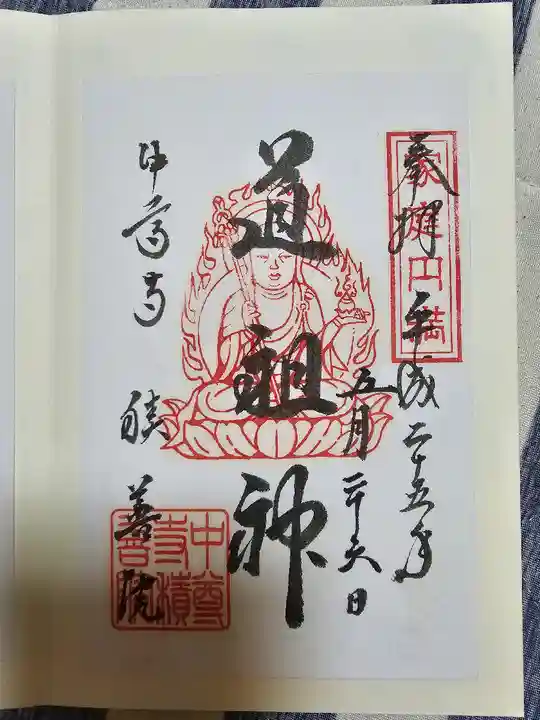 家庭円満
奉拝 平成二十五年
五月二十六日
道祖神
中尊寺 積善院
中尊
寺積
善院